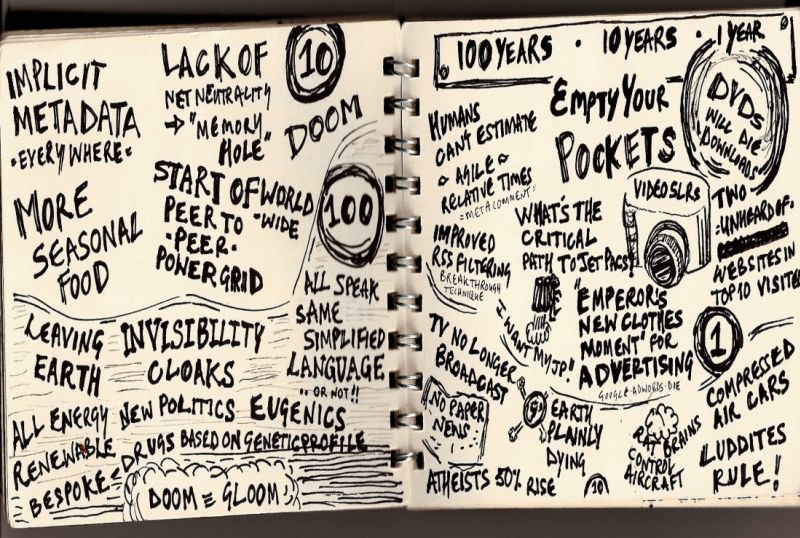 IMPLICIT
METADATA
-EVERYWHERE-
LACK OF
NET NEUTRALITY
→ "MEMORY
HOLE"
10
DOOM
MORE
SEASONAL
FOOD
START OF WORLD
-WIDE
PEER TO
-PEER-
POWER GRID
100
ALL SPEAK
SAME
SIMPLIFIED
LANGUAGE
..OR NOT!!
LEAVING
EARTH
INVISIBILITY
CLOAKS
ALL ENERGY
RENEWABLE
NEW POLITICS
EUGENICS
BESPOKE
DRUGS BASED ON GENETIC PROFILE
DOOM & GLOOM!
100 YEARS · 10 YEARS · 1 YEAR
HUMANS
CAN'T ESTIMATE
AGILE
RELATIVE TIMES
=METACOMMENT=
EMPTY YOUR
POCKETS
DVDs
WILL DIE
DOWNLOADS
VIDEO SLRs
TWO
-UNHEARD OF-
WEBSITES IN
TOP 10 VISITED
WHAT'S THE
CRITICAL
PATH TO JET PACS?
IMPROVED
RSS FILTERING
BREAKTHROUGH
TECHNIQUE
I WANT MY JP"
"EMPEROR'S
NEW CLOTHES
MOMENT' FOR
ADVERTISING
GOOGLE-ADWORDS-DIE
1
TV NO LONGER
BROADCAST
NO PAPER
NEWS
EARTH
PLAINLY
DYING
10
RAT BRAINS
CONTROL
AIRCRAFT
COMPRESSED
AIR CARS
LUDDITES
RULE!
ATHEISTS 50% RISE